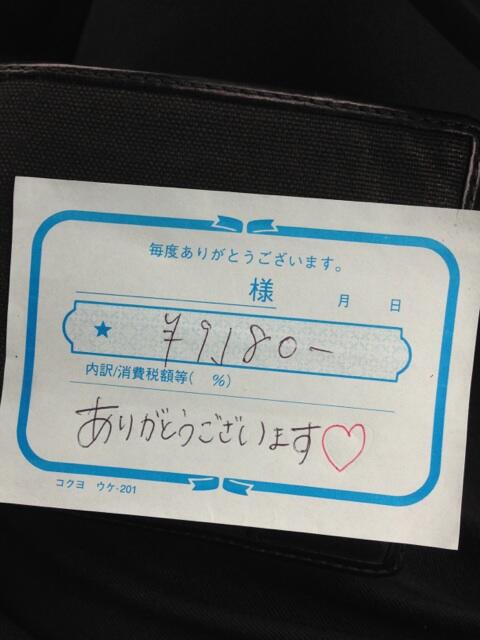 毎度ありがとうございます。
様 月 日
★ ¥9,180-
内訳/消費税額等( %)
ありがとうございます♡
コクヨ ウケ-201